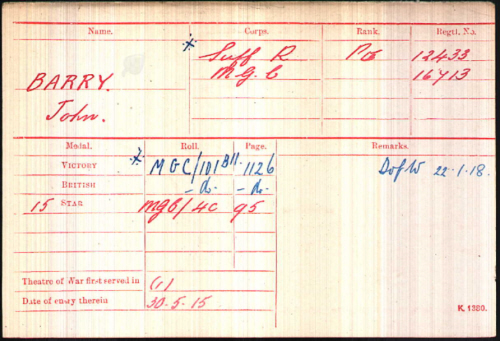 Name. Corps. Rank. Regtl. No.
BARRY. * Suff R Pte 12433
John. M.G.C 16713
Medal. Roll. Page. Remarks.
VICTORY * MGC/101B11. 1126 D of W 22.1.18.
BRITISH -do- -do-
15 STAR MGC/4C 95
Theatre of War first served in (1)
Date of entry therein 30.5.15
K. 1380.